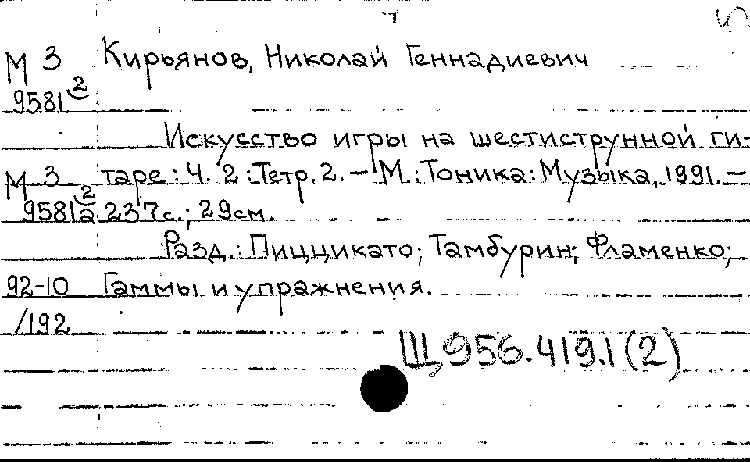 М 3 Кирьянов, Николай Геннадиевич
9581 2
Искусство игры на шестиструнной ги-
М 3 таре: Ч. 2: Тетр. 2. – М.: Тоника: Музыка, 1991. –
9581а 2 237с.; 29см.
Разд.: Пиццикато; Тамбурин; Фламенко;
92-10 Гаммы и упражнения.
/192
Щ956.419.1(2)